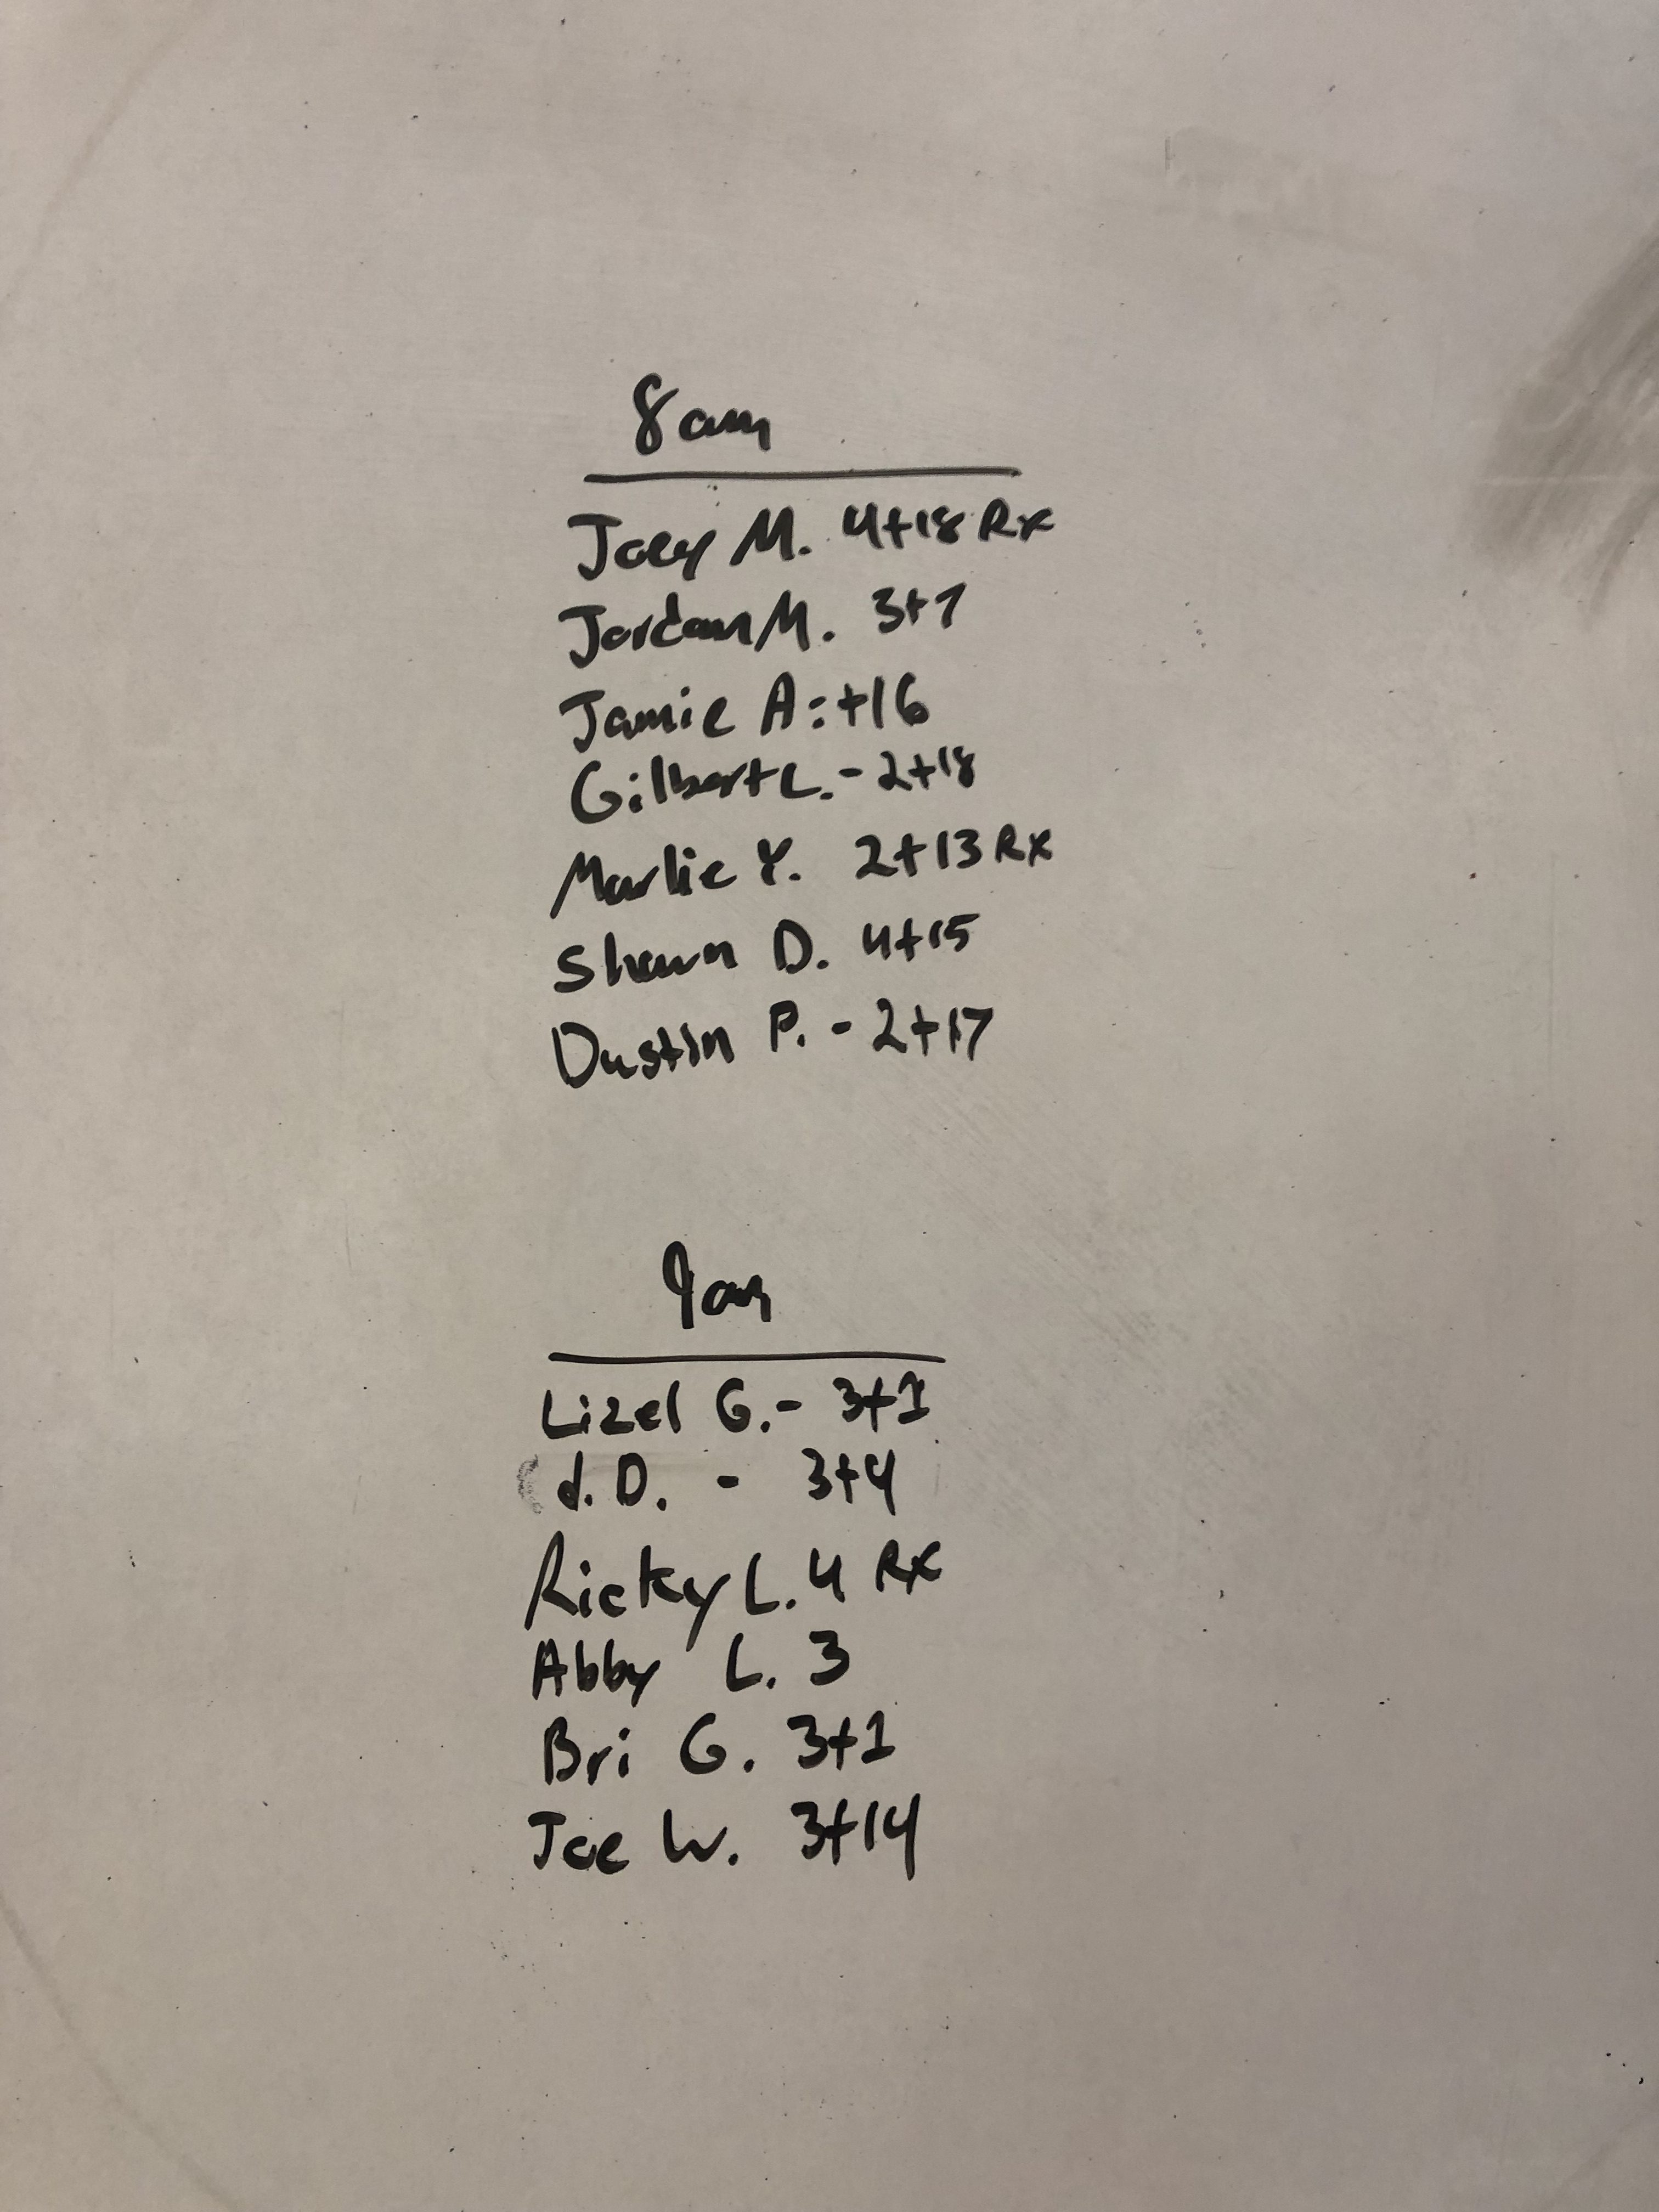 8am
Joey M. 4+18 Rx
Jordan M. 3+7
Jamie A: +16
Gilbert L. - 2+18
Marlie Y. 2+13 Rx
Shawn D. 4+15
Dustin P. - 2+17
9am
Lizel G. - 3+1
d.D. - 3+4
Ricky L. 4 Rx
Abby L. 3
Bri G. 3+1
Joe W. 3+14